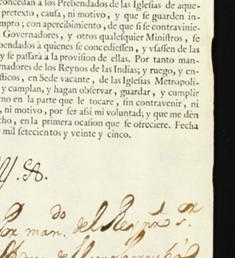 concedan à los Prebendados de las Iglesias de aque-
pretexto, causa, ni motivo, y que se guarden in-
mpto; con apercibimiento, de que si se contravinie-
Governadores, y otros qualesquier Ministros, se
bendados à quienes se concediessen, y vsassen de las
y se passarà à la provision de ellas. Por tanto man-
rnadores de los Reynos de las Indias; y ruego, y en-
sticos, en Sede vacante, de las Iglesias Metropoli-
y cumplan, y hagan observar, guardar, y cumplir
no en la parte que le tocare, sin contravenir, ni
, ni motivo, por ser assi mi voluntad; y que me dèn
cho, en la primera ocasion que se ofreciere. Fecha
mil setecientos y veinte y cinco.
Por man.do del Rey